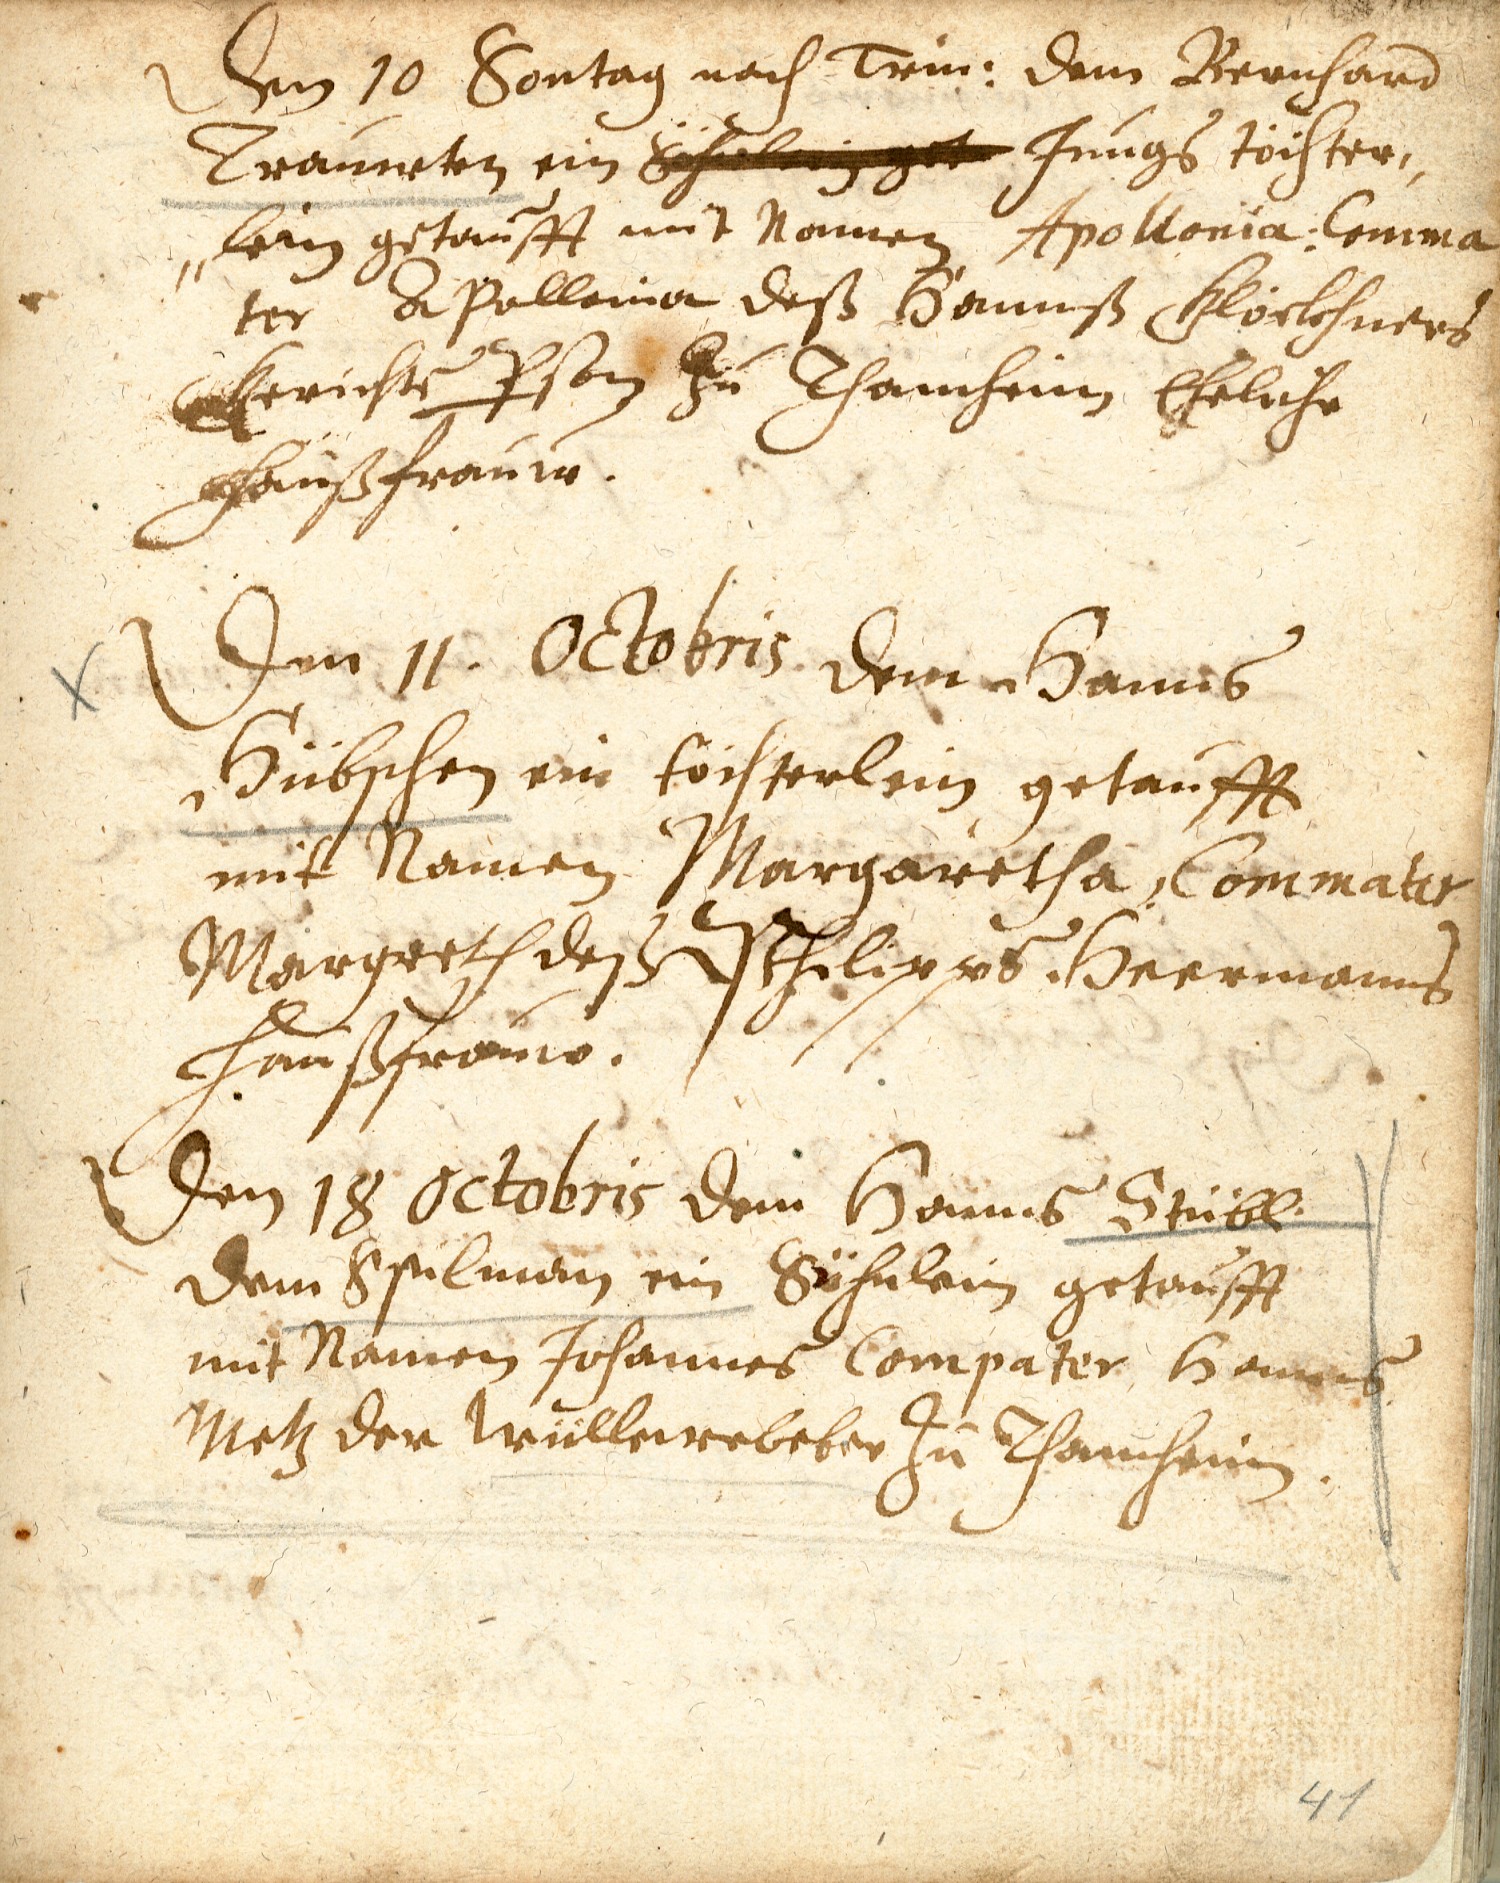 Den 10 Sontag nach Trin: dem Bernhard
Traurten ein Jungs töchter,,
,,lein getaufft mit Namen Apollonia: Comma
ter Apollonia deß Hannß Klöckhners
Gerichts Pson zu Thanheim Eheliche
haußfrauw.
Den 11. Octobris dem Hanns
Hübschen ein töchterlein getaufft
mit Namen Margaretha, Commater
Margreth deß Philipps Heermanns
haußfrauw.
Den 18 Octobris dem Hanns Stübl.
dem Spilman ein Söhnlein getaufft
mit Namen Johannes Compater Hanns
Metz der Wüllewebeber zu Thanheim.
41